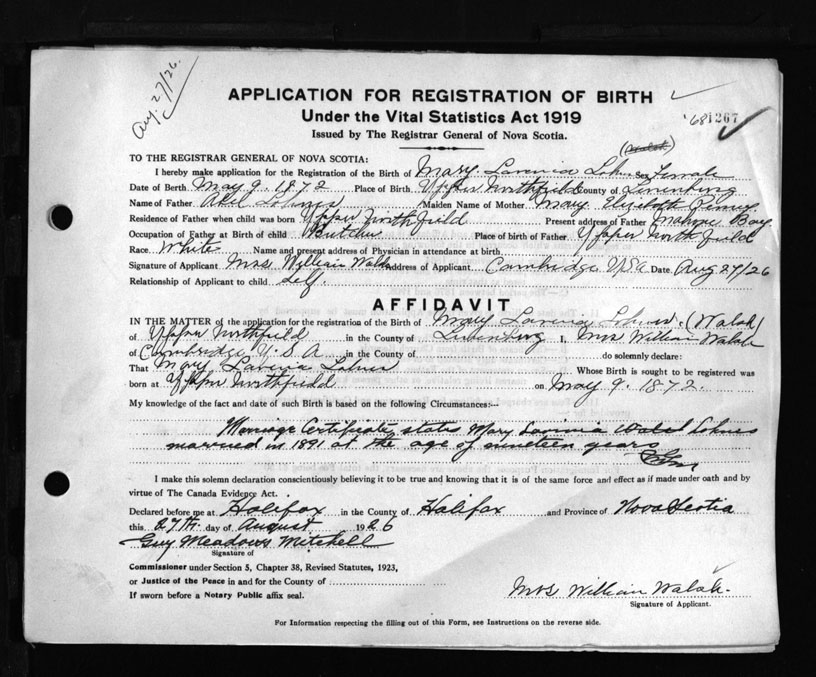 Aug. 27/26.
APPLICATION FOR REGISTRATION OF BIRTH
Under the Vital Statistics Act 1919
681267
Issued by The Registrar General of Nova Scotia.
(Walsh)
TO THE REGISTRAR GENERAL OF NOVA SCOTIA:
I hereby make application for the Registration of the Birth of Mary Lavinia Lohnes Sex Female
Date of Birth May 9. 1872 Place of Birth Upper Northfield County of Lunenburg
Name of Father Abel Lohnes Maiden Name of Mother Mary Elizabeth
Residence of Father when child was born Upper Northfield Present address of Father Mahone Bay
Occupation of Father at Birth of child Butcher Place of birth of Father Upper Northfield
Race White Name and present address of Physician in attendance at birth
Signature of Applicant Mrs William Walsh Address of Applicant Cambridge USA Date Aug 27/26
Relationship of Applicant to child Self.
AFFIDAVIT
IN THE MATTER of the application for the registration of the Birth of Mary Lavinia Lohnes. (Walsh)
of Upper Northfield in the County of Lunenburg I, Mrs William Walsh
of Cambridge U.S.A in the County of do solemnly declare:
That Mary Lavinia Lohnes Whose Birth is sought to be registered was
born at Upper Northfield on May 9. 1872.
My knowledge of the fact and date of such Birth is based on the following Circumstances:—
Marriage Certificate, states Mary Lavinia Walsh Lohnes
married in 1891 at the age of nineteen years
I make this solemn declaration conscientiously believing it to be true and knowing that it is of the same force and effect as if made under oath and by
virtue of The Canada Evidence Act.
Declared before me at Halifax in the County of Halifax and Province of Nova Scotia
this 27th. day of August 1926
Guy Meadows Mitchell
Signature of
Commissioner under Section 5, Chapter 38, Revised Statutes, 1923,
or Justice of the Peace in and for the County of
If sworn before a Notary Public affix seal.
Mrs William Walsh.
Signature of Applicant.
For Information respecting the filling out of this Form, see Instructions on the reverse side.